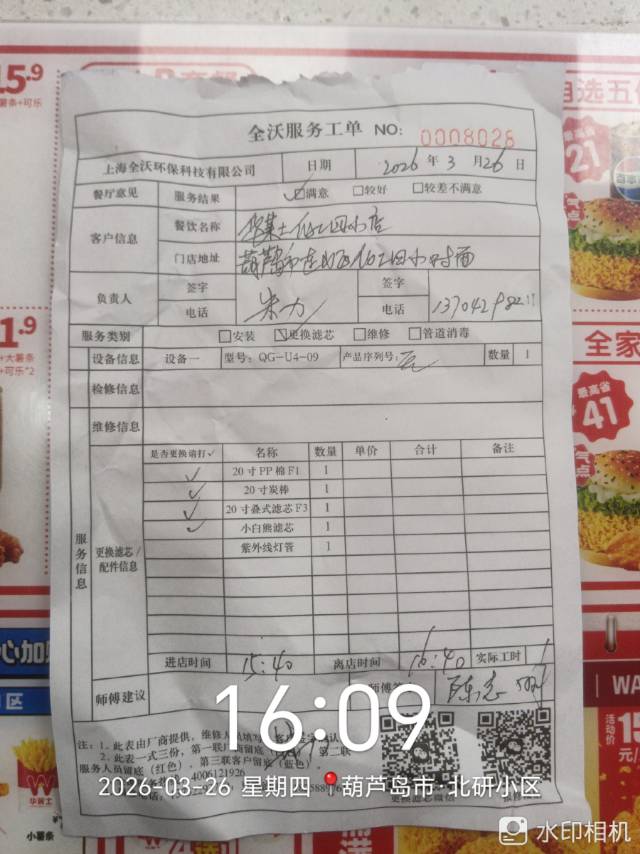 15.9
薯条+可乐
自选五件
最高省
21
气点
1.9
+大薯条
+可乐*2
全家
最高省
41
气点
全沃服务工单 NO: 0008028
上海全沃环保科技有限公司 日期 2026 年 3 月 26 日
餐厅意见 服务结果 满意 较好 较差不满意
客户信息 餐饮名称
门店地址
负责人 签字 朱力 签字
电话 电话
服务类别 安装 更换滤芯 维修 管道消毒
设备信息 设备一 型号: QG-U4-09 产品序列号: 数量 1
检修信息
维修信息
服务信息
更换滤芯/配件信息
是否更换请打✓ 名称 数量 单价 合计 备注
✓ 20寸PP棉F1 1
✓ 20寸炭棒 1
✓ 20寸叠式滤芯F3 1
✓ 小白熊滤芯 1
紫外线灯管 1
进店时间 15:40 离店时间 16:40 实际工时 1
师傅建议
注: 1.此表由厂商提供, 维修人员填写
2.此表一式三份, 第一联厂商留底
第二联
服务人员留底(红色), 第三联客户留底(蓝色).
4006121926
更换滤芯微信
16:09
2026-03-26 星期四 葫芦岛市·北研小区
水印相机
心加
区
华莱士
小薯条
WA
活动